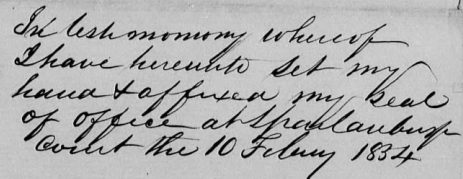 In testimomony whereof
I have hereunto set my
hand & affixed my seal
of office at Spartanburgh
Court the 10 Febuy 1834